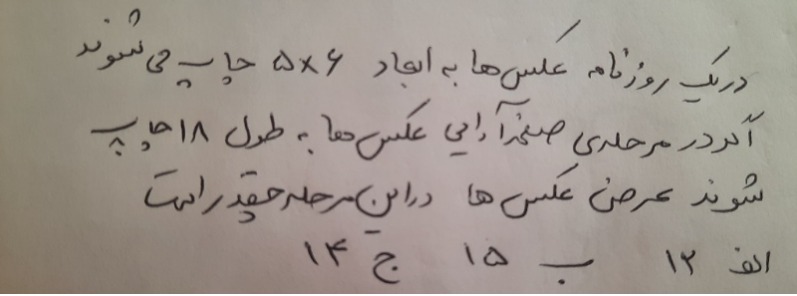 در یک روزنامه عکس ها به ابعاد ۶×۵ چاپ می شوند
اگر در مرحله ی صفحه آرایی عکس ها به طول ۱۸ چاپ
شوند عرض عکس ها در این مرحله چقدر است
الف ۱۲ ب ۱۵ ج ۱۴